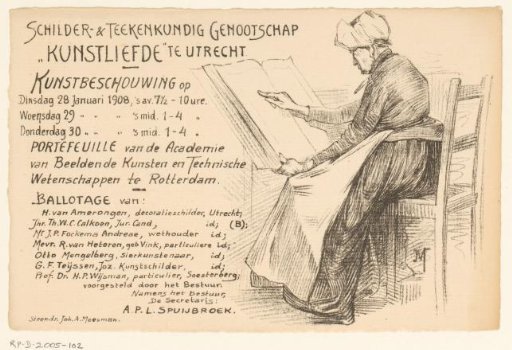 SCHILDER- & TEEKENKUNDIG GENOOTSCHAP
„KUNSTLIEFDE" TE UTRECHT.
KUNSTBESCHOUWING op
Dinsdag 28 Januari 1908, 's av. 7½ - 10 ure.
Woensdag 29 - „ „ 's mid. 1 - 4 „
Donderdag 30 „ - „ 's mid. 1 - 4 „
PORTEFEUILLE van de Academie
van Beeldende Kunsten en Technische
Wetenschappen te Rotterdam.
BALLOTAGE van:
H. van Amerongen, decoratieschilder, Utrecht;
Jhr. Th. W. C. Calkoen, Jur. Cand., id; (B);
Mr J. P. Fockema Andreae, wethouder id;
Mevr. R. van Hoboren, geb Vink, particuliere id;
Otto Mengelberg, sierkunstenaar, id;
G. F. Teijssen, Joz. Kunstschilder, id;
Prof. Dr. H. P. Wijsman, particulier, Soesterberg;
voorgesteld door het Bestuur.
Namens het Bestuur,
De Secretaris:
A. P. L. SPUIJBROEK.
Steendr. Joh. A. Moesman.
RP-D-2005-102